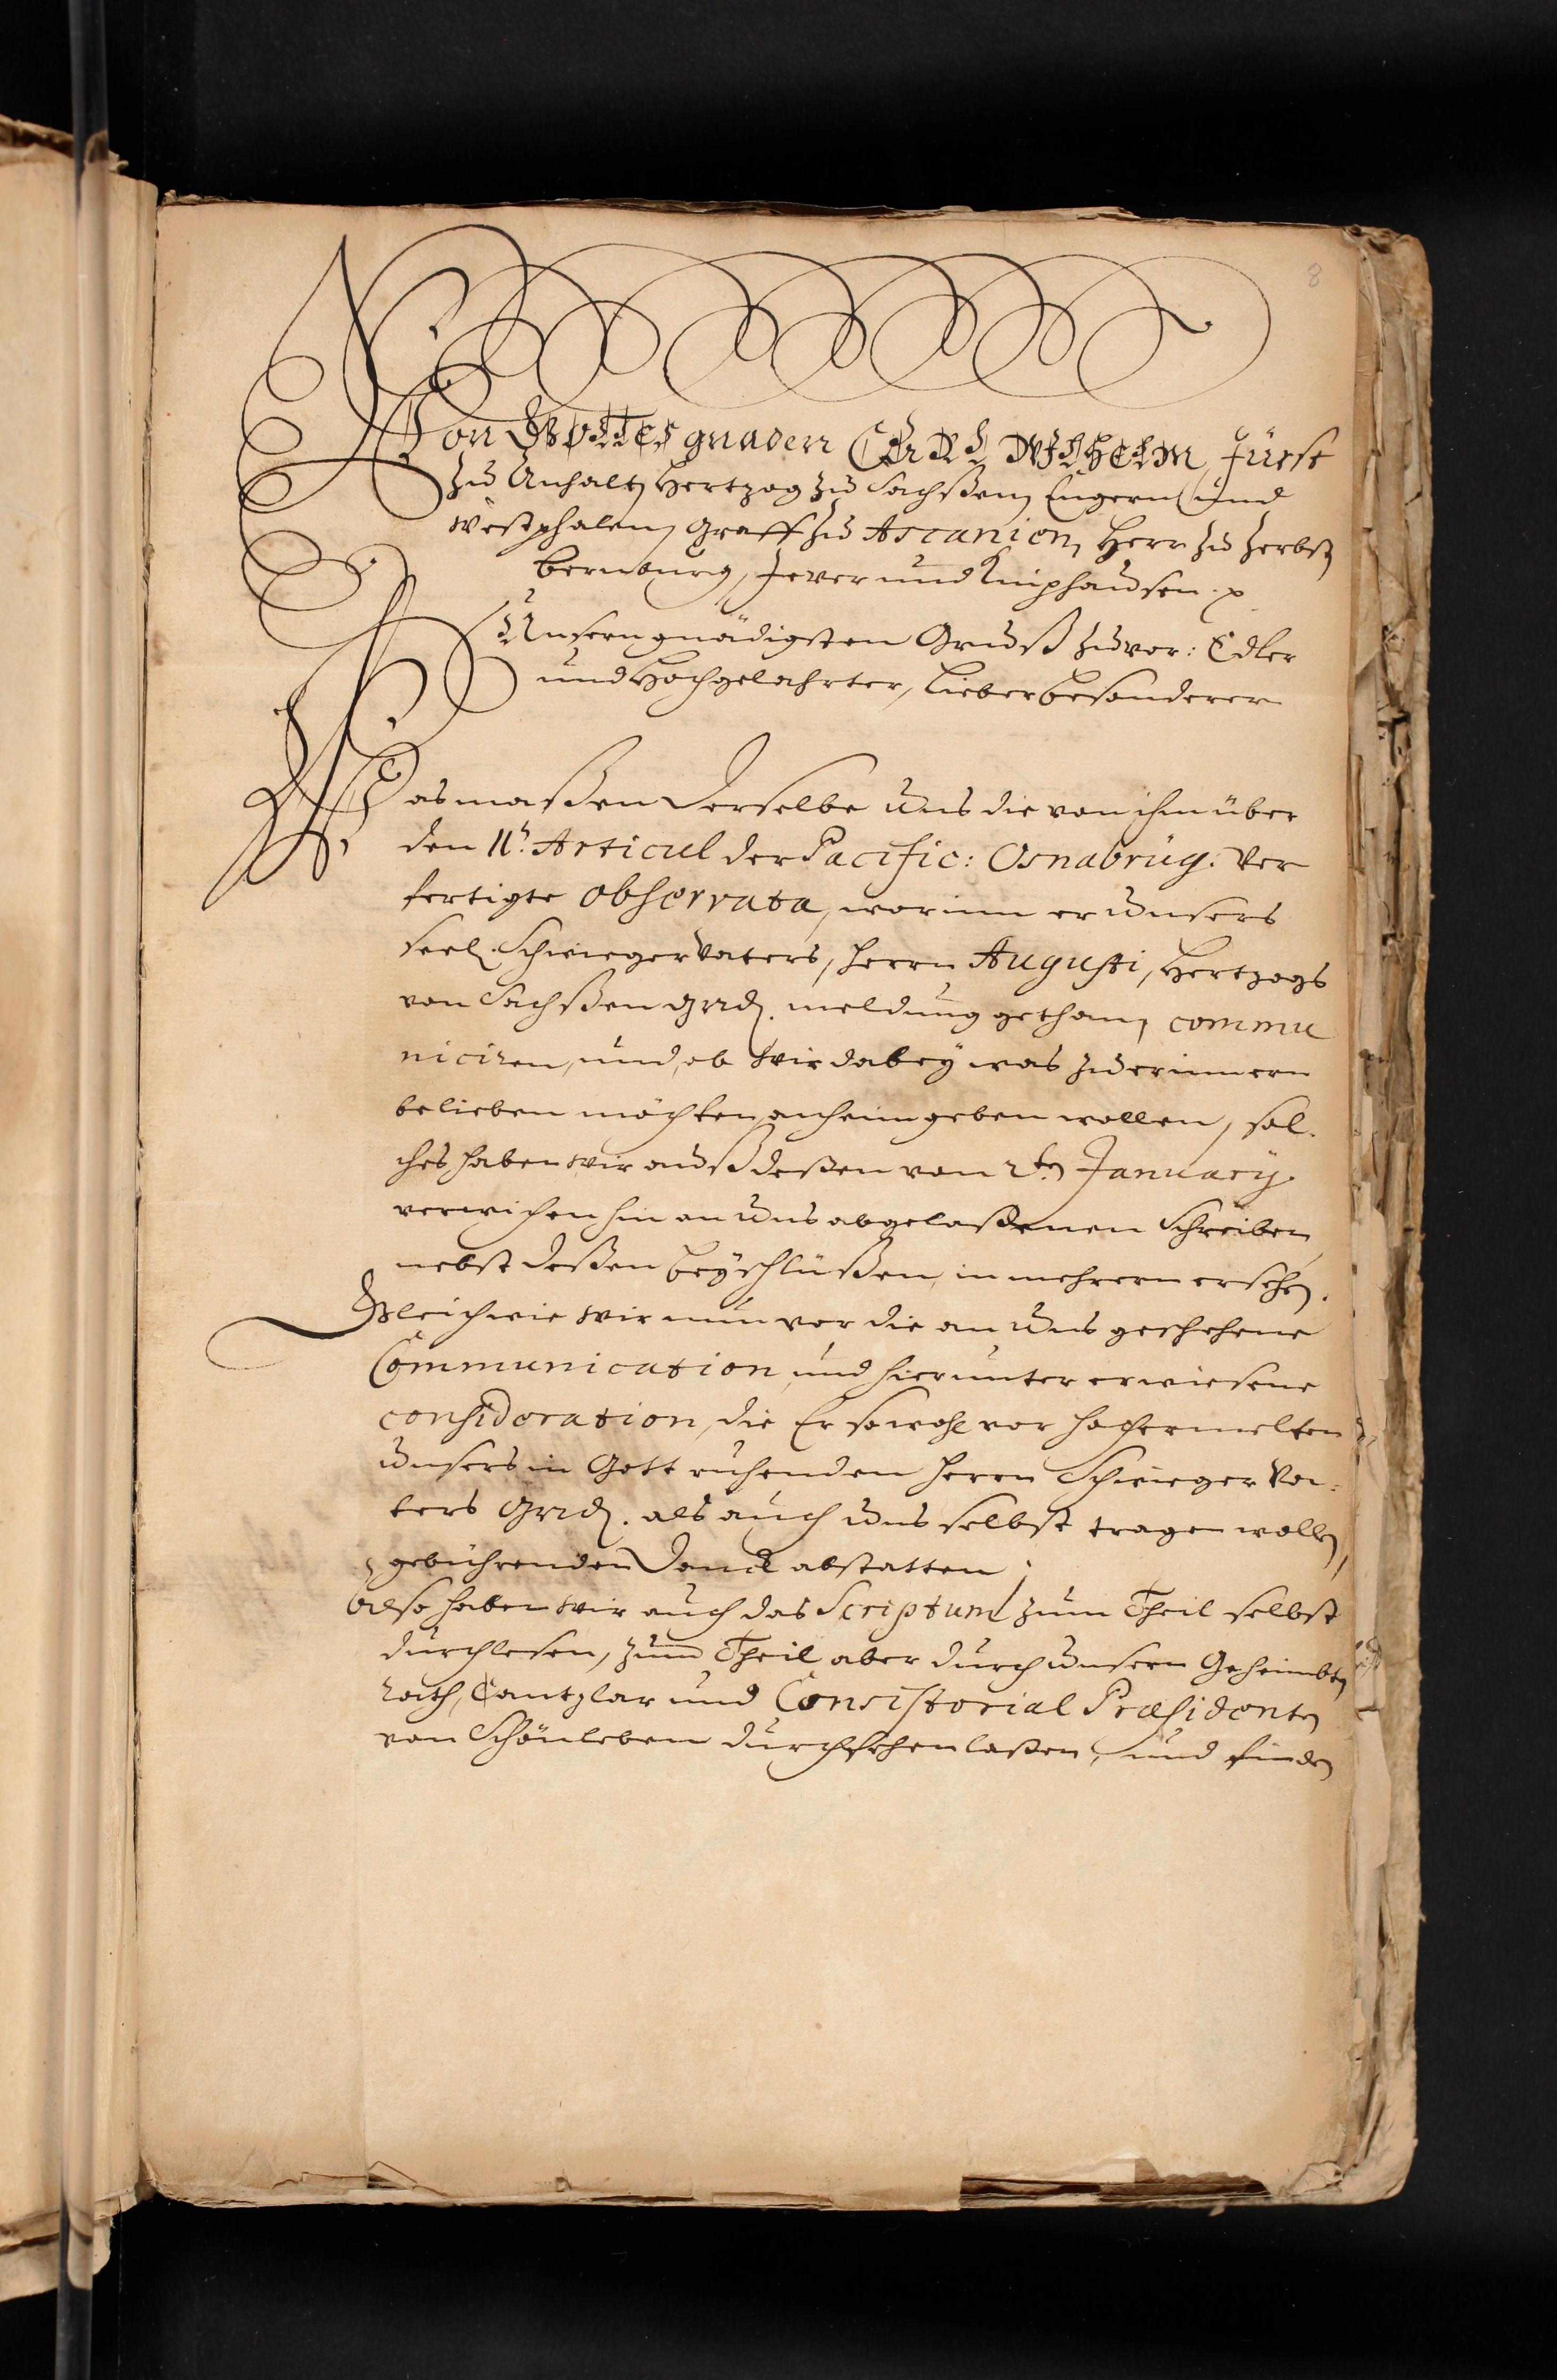 8
Von Gottes gnaden Carl Wilhelm, Fürst
zu Anhalt, Hertzog zu Sachßen, Engern und
Westphalen, Graff zu Ascanien, Herr zu Zerbst,
Bernburg, Jever und Kniphausen. p
Unsern gnädigsten Gruß zuvor: Edler
und Hochgelahrter, Lieber besonderer
Wasmaßen derselbe Uns die von ihm über
den 11t. Articul der Pacific: Osnabrüg. Ver
fertigte observata, worinn er Unsers
seel. SchwiegerVaters, Herrn Augusti, Hertzogs
von Sachßen Gnd. meldung gethan, commu
niciren, und, ob Wir dabey was zu erinnern
belieben möchten, anheim geben wollen, sol-
ches haben Wir auß deßen von 2ten January.
verwichenhin an Uns abgelaßenen Schreiben,
nebst deßen beyschlüßen, in mehrern ersehen.
Gleichwie Wir nun vor die an Uns geschehene
Communication, und hierunter erwiesene
consideration, die Er sowohl vor hochermelten
Unsers in Gott ruhenden Herrn Schwieger Va-
ters Gnd. als auch Uns selbst tragen wollen,
gebührenden Danck abstatten;
Also haben Wir auch das Scriptum zum Theil selbst
durchlesen, zum Theil aber durch Unsern Geheimbten
Rath, Cantzlar und Consistorial Præsidenten
von Schönleben durchsehen laßen, und finden